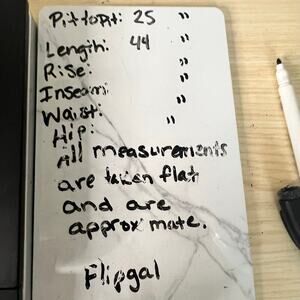 Pit to Pit: 25 "
Length: 44 "
Rise: "
Inseam: "
Waist: "
Hip:
All measurements
are taken flat
and are
approximate.
Flipgal